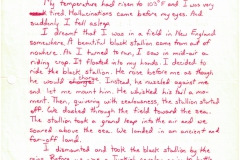 My temperature had risen to 103°F and I was very
tired. Hallucinations came before my eyes. And
suddenly I fell asleep.
I dreamt that I was in a field in New England
somewhere. A beautiful black stallion came from out of
nowhere. As I turned to run, I saw in mid-air a
riding crop. It floated into my hands. I decided to
ride the black stallion. He rose before me as though
he would charge. Instead, he nuzzled against me
and let me mount him. He whisked his tail a
moment. Then, quivering with uneasiness, the stallion started
off. We dashed through the field toward the sea.
The stallion took a great leap into the air and we
soared above the sea. We landed in an ancient
far-off land.
I dismounted and took the black stallion by the